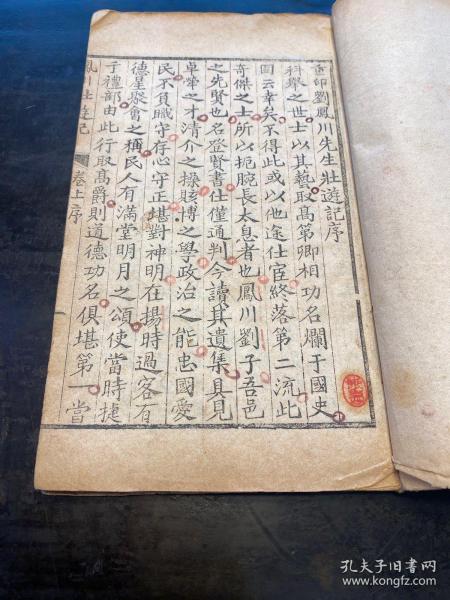 重印劉鳳川先生壯遊記序
科舉之世士以其藝取高第卿相功名爛于國史
固云幸矣不得此或以他途仕宦終落第二流此
奇傑之士所以扼腕長太息者也鳳川劉子吾邑
之先賢也名登賢書仕僅通判今讀其遺集具見
卓犖之才清介之操賅博之學政治之能忠國愛
民不負職守存心守正堪對神明在揚時過客有
德星聚會之稱民人有滿堂明月之頌使當時捷
于禮部由此行取高爵則道德功名俱堪第一當
鳳川壯遊記 卷上序
孔夫子旧书网
www.kongfz.com